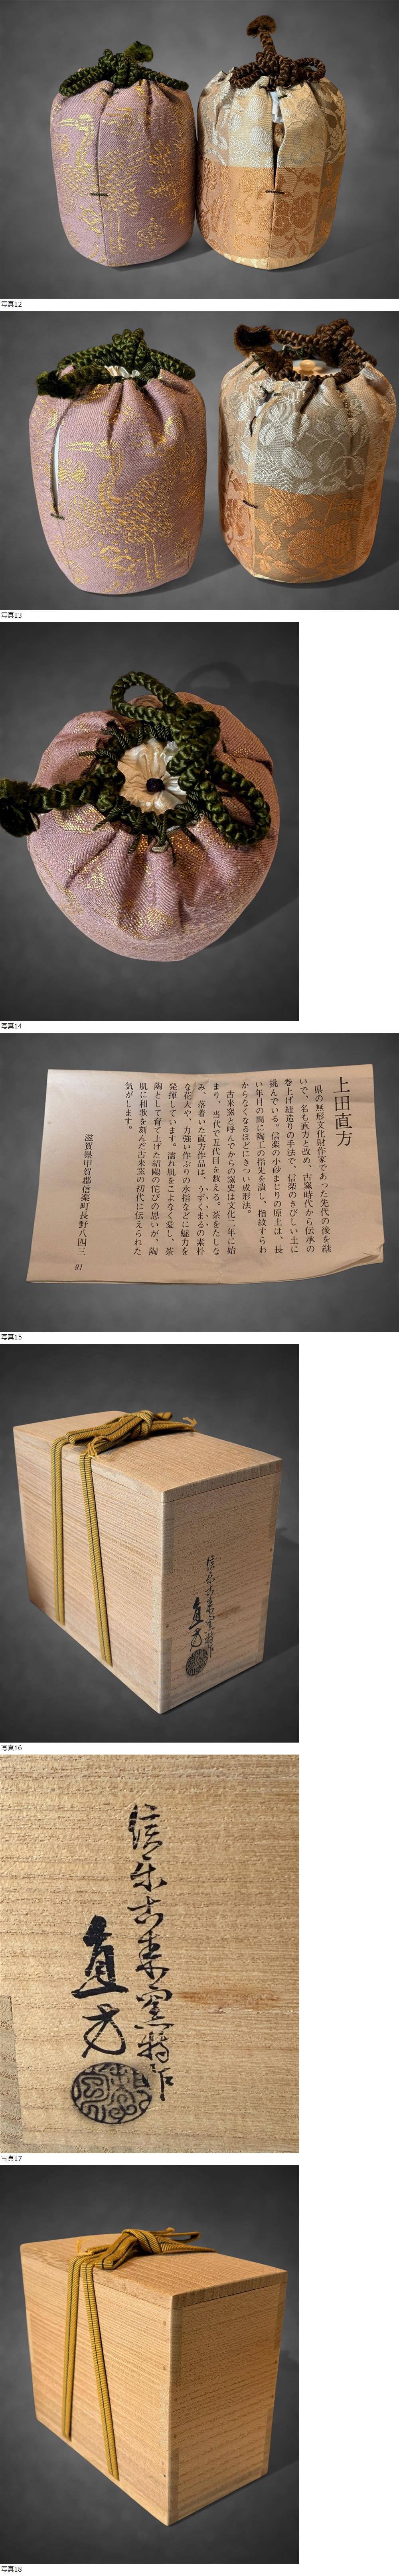 写真12
写真13
写真14
上田直方
県の無形文化財作家であった先代の後を継
いで、名も直方と改め、古窯時代から伝承の
巻上げ紐造りの手法で、信楽のきびしい土に
挑んでいる。信楽の小砂まじりの原土は、長
い年月の間に陶工の指先を潰し、指紋すらわ
からなくなるほどにきつい成形法。
古来窯と呼んでからの窯史は文化二年に始
まり、当代で五代目を数える。茶をたしな
み、落着いた直方作品は、うずくまるの素朴
な花入や、力強い作ぶりの水指などに魅力を
発揮しています。濡れ肌をこよなく愛し、茶
陶として育て上げた紹鷗の侘びの思いが、陶
肌に和歌を刻んだ古来窯の初代に伝えられた
気がします。
滋賀県甲賀郡信楽町長野八四三
91
写真15
信楽古来窯特作
直方
写真16
信楽古来窯特作
直方
写真17
写真18